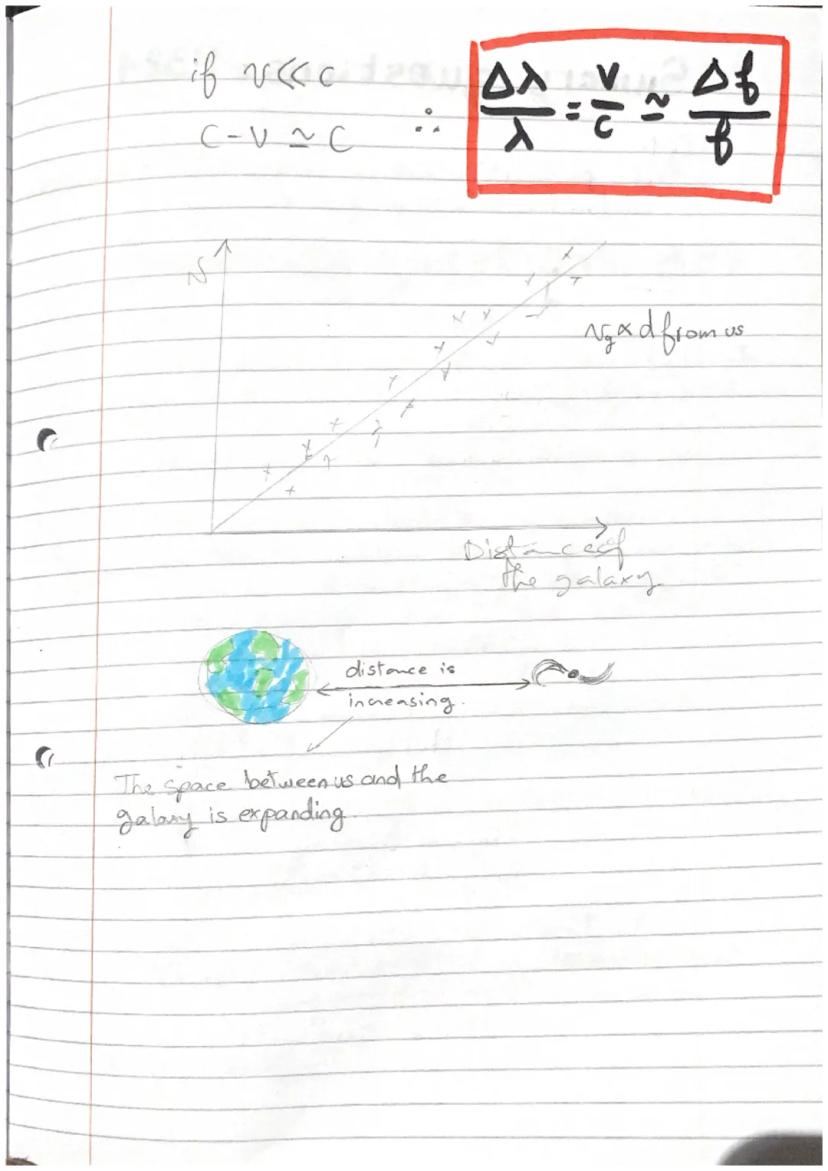 if v<<c
c-v ≃ c ∴ Δλ/λ = v/c ≃ Δf/f
v
v_g ∝ d from us
Distance of
the galaxy
distance is
increasing.
The space between us and the
galaxy is expanding.